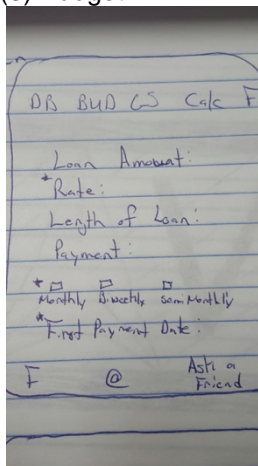 DB BUD CS Calc F
Loan Amount:
*Rate:
Length of Loan:
Payment:
*
Monthly Biweekly Semi Monthly
*First Payment Date:
F @ Ask a
Friend